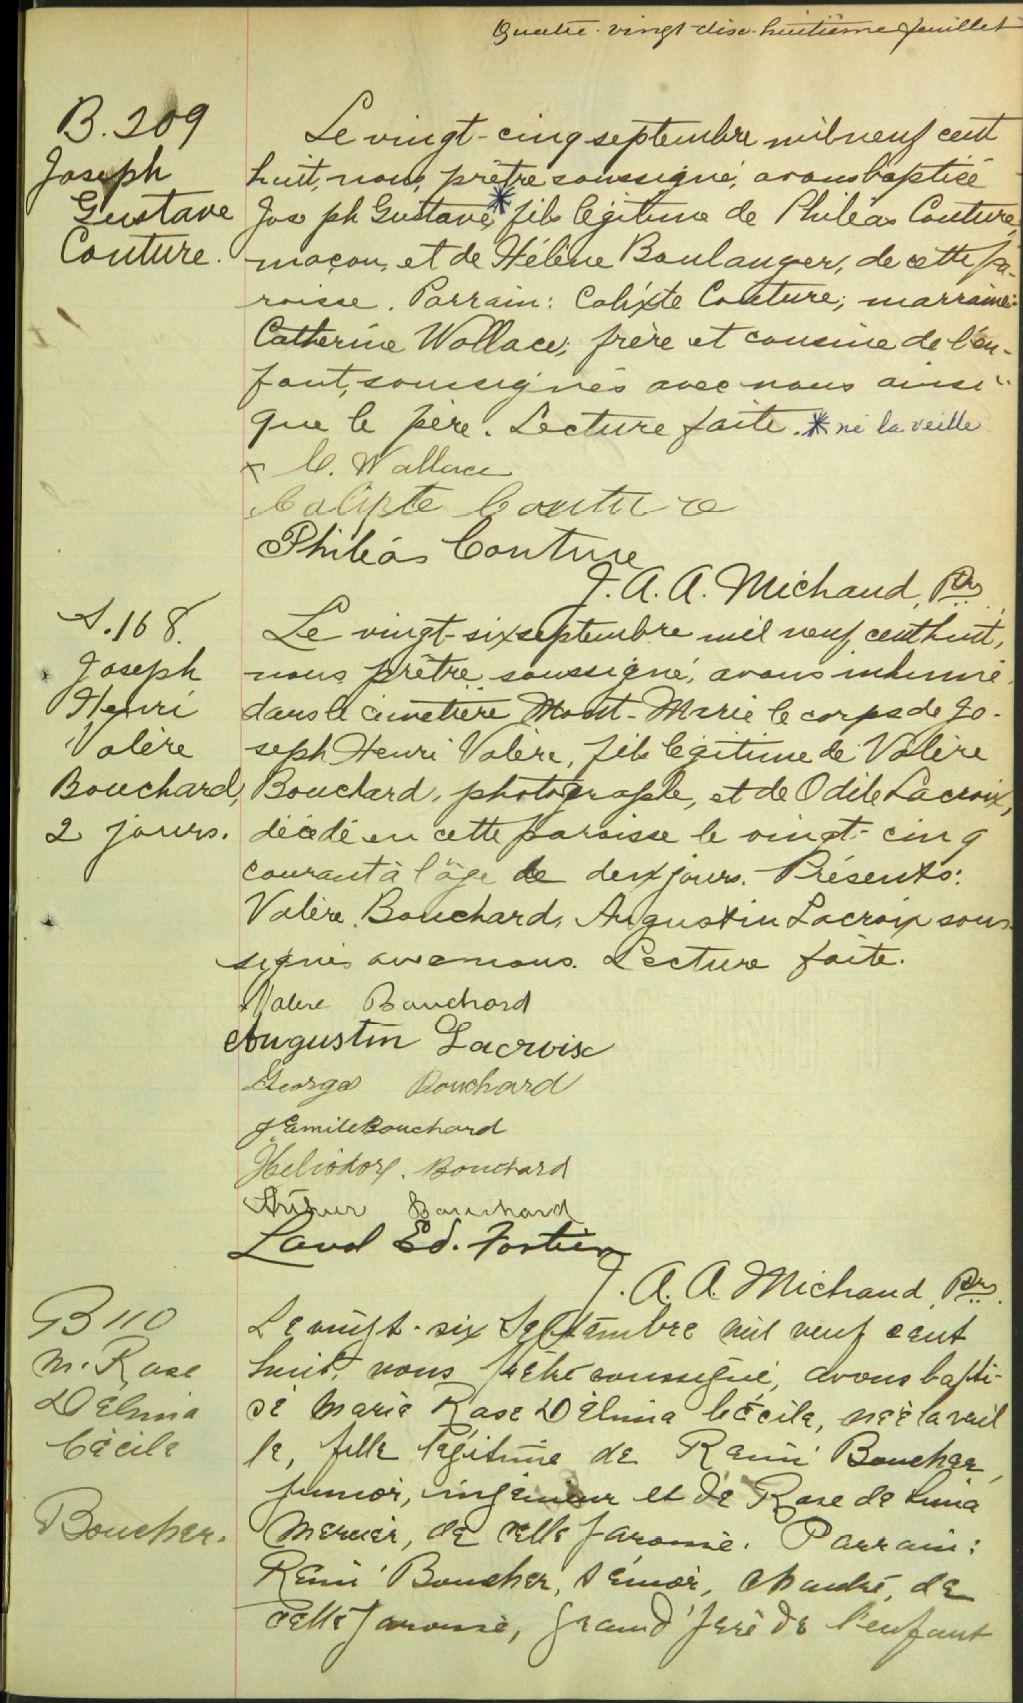 Quatre-vingt-dix-huitième feuillet
B. 209
Joseph
Gustave
Couture.
Le vingt-cinq septembre mil neuf cent
huit, nous, prêtre soussigné, avons baptisé
Joseph Gustave,* fils légitime de Philéas Couture,
maçon, et de Hélène Boulanger, de cette pa-
roisse. Parrain: Calixte Couture; marraine:
Catherine Wallace, frère et cousine de l'en-
fant, soussignés avec nous ainsi
que le père. Lecture faite. * né la veille
x C. Wallace
Calixte Couture
Philéas Couture
J. A. A. Michaud, Ptr
S. 168.
Joseph
Henri
Valère
Bouchard,
2 jours.
Le vingt-six septembre mil neuf cent huit,
nous prêtre soussigné, avons inhumé
dans le cimetière Mont-Marie le corps de Jo-
seph Henri Valère, fils légitime de Valère
Bouchard, photographe, et de Odile Lacroix,
décédé en cette paroisse le vingt-cinq
courant à l'âge de deux jours. Présents:
Valère Bouchard, Augustin Lacroix sous-
signés avec nous. Lecture faite.
Valère Bouchard
Augustin Lacroix
George Bouchard
J Emile Bouchard
Heliodore Bouchard
Arthur Bouchard
Laval Ed. Fortier
J. A. A. Michaud, Ptr
B 110
M. Rose
Délima
Cécile
Boucher.
Le vingt-six Septembre mil neuf cent
huit, nous prêtre soussigné, avons bapti-
sé Marie Rose Délima Cécile, née la veil
le, fille légitime de Rémi Boucher,
junior, ingénieur et de Rose de Lima
Mercier, de cette paroisse. Parrain:
Rémi Boucher, sénior, chantre, de
cette paroisse, grand'père de l'enfant